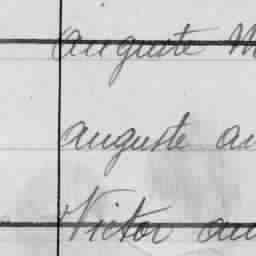 Auguste M
auguste au
Victor au